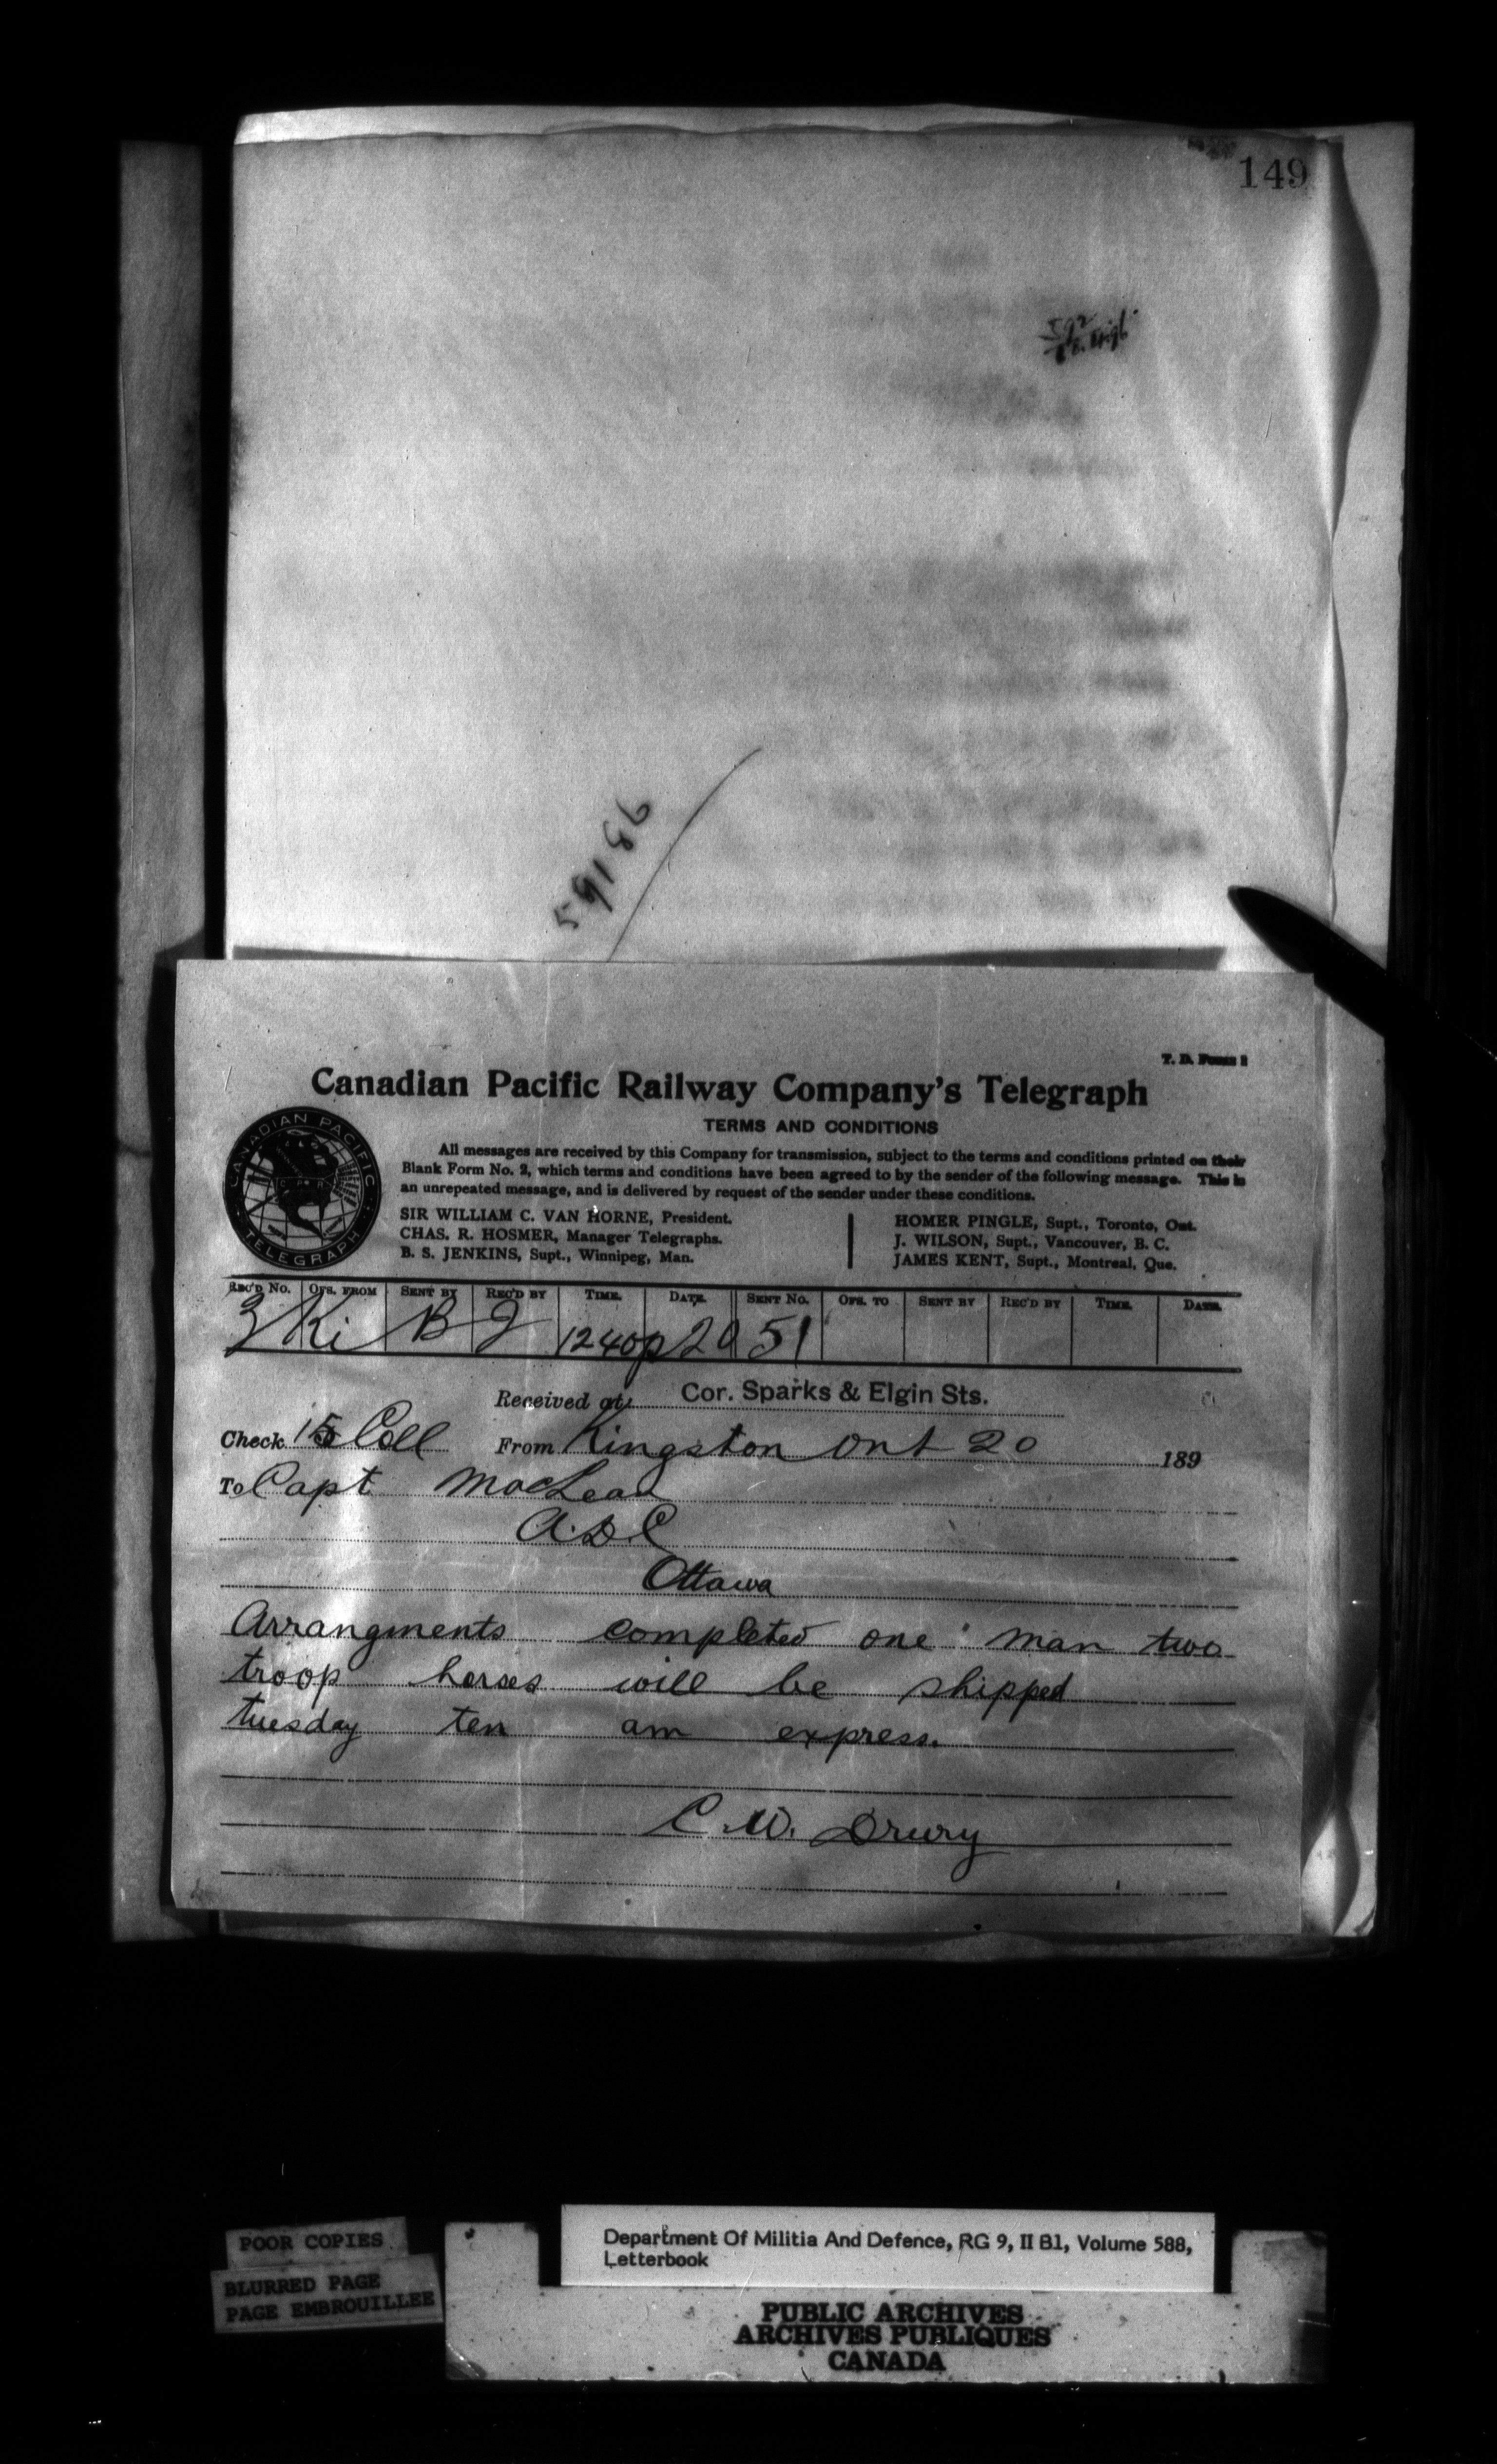 149
59186
T. D. Form 1
Canadian Pacific Railway Company's Telegraph
TERMS AND CONDITIONS
All messages are received by this Company for transmission, subject to the terms and conditions printed on their
Blank Form No. 2, which terms and conditions have been agreed to by the sender of the following message. This is
an unrepeated message, and is delivered by request of the sender under these conditions.
SIR WILLIAM C. VAN HORNE, President.
CHAS. R. HOSMER, Manager Telegraphs.
B. S. JENKINS, Supt., Winnipeg, Man.
HOMER PINGLE, Supt., Toronto, Ont.
J. WILSON, Supt., Vancouver, B. C.
JAMES KENT, Supt., Montreal, Que.
CANADIAN PACIFIC
TELEGRAPH
REC'D NO. OFS. FROM SENT BY REC'D BY TIME. DATE. SENT NO. OFS. TO SENT BY REC'D BY TIME. DATE.
3 Ki B 1240p 20 51
Received at Cor. Sparks & Elgin Sts.
Check 15 Coll From Kingston Ont 20 189
To Capt MacLean
A.D.C
Ottawa
Arrangments completed one man two
troop horses will be shipped
tuesday ten am express.
C.W. Drury
POOR COPIES
BLURRED PAGE
PAGE EMBROUILLEE
Department Of Militia And Defence, RG 9, II B1, Volume 588,
Letterbook
PUBLIC ARCHIVES
ARCHIVES PUBLIQUES
CANADA